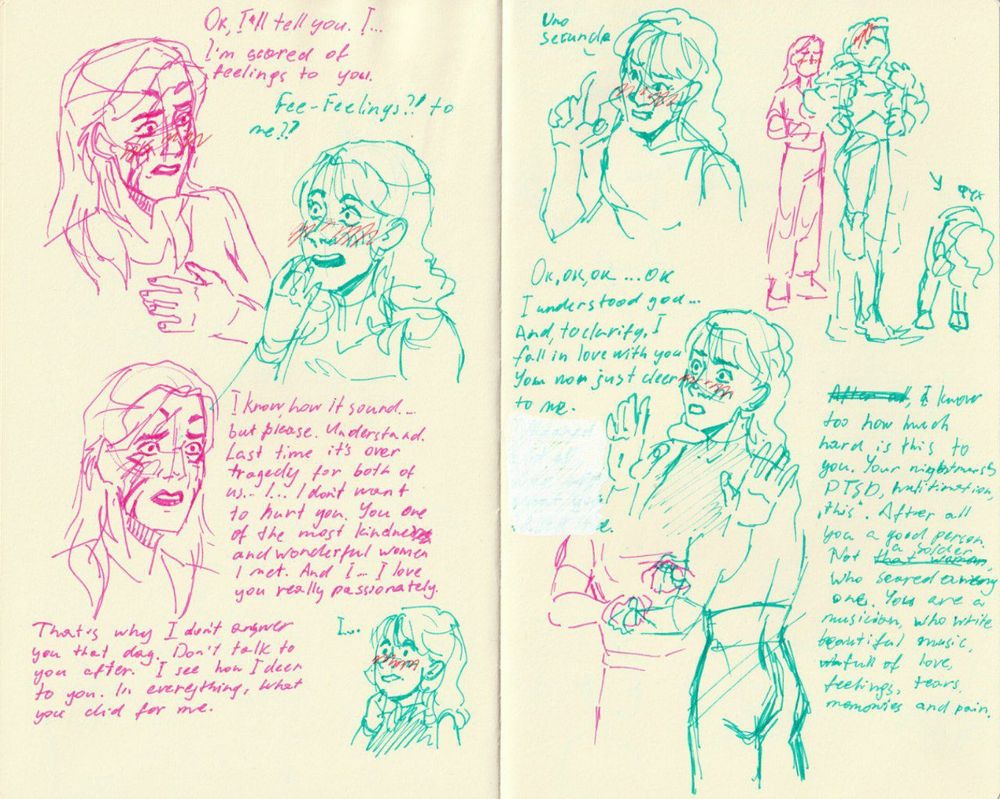 Ok, I'll tell you. I...
I'm scared of
feelings to you.
Fee-Feelings?! to
me??
I know how it sound...
but please. Understand.
Last time it's over
tragedy for both of
us... I... I don't want
to hurt you. You one
of the most kindness
and wonderful women
I met. And I... I love
you really passionately.
That's why I don't answer
you that day. Don't talk to
you after. I see how I deer
to you. In everything, what
you did for me.
I...
Uno
secunda
фух
Ok, ok, ok ... ok
I understood you...
And, to clarify, I
fall in love with you
You non just deer
to me.
After all, I know
too how much
hard is this to
you. Your nightmares,
PTSD,
"this". After all
you a good person
Not that woman, a solder
who scared
one. You are a
musician, who write
beautiful music,
full of love,
feelings, tears,
memories and pain.